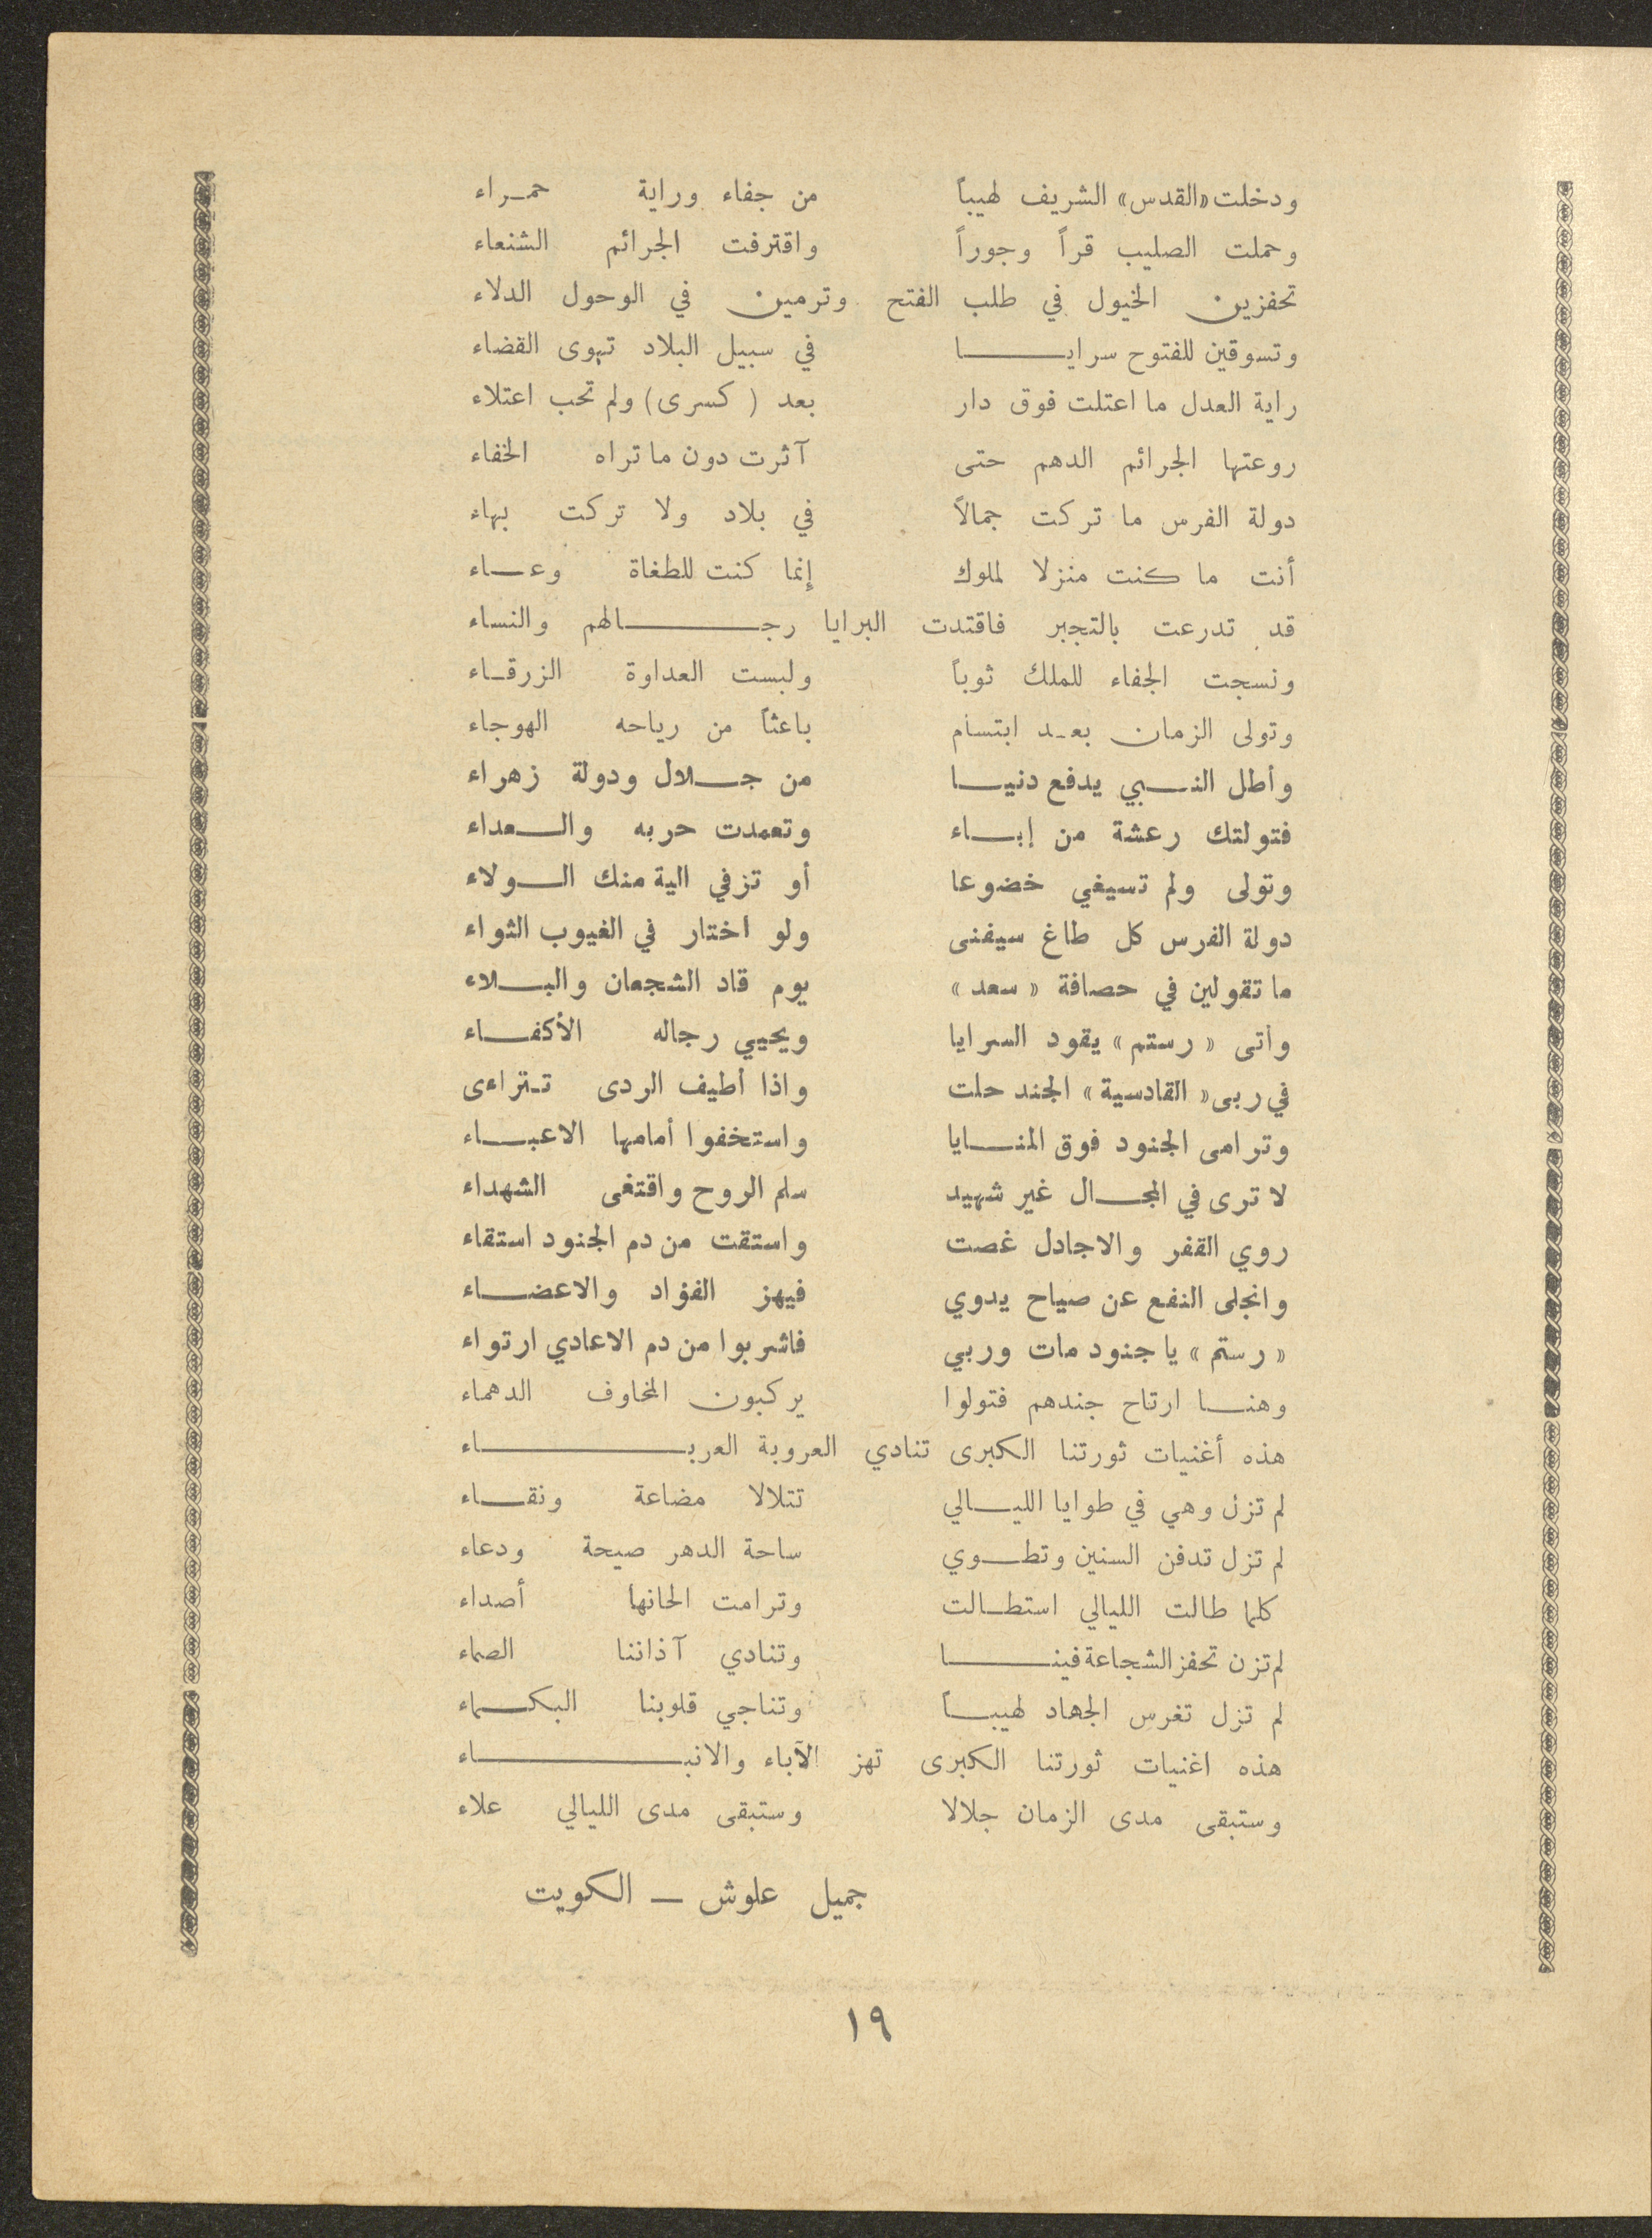 ودخلت «القدس» الشريف لهيباً من جفاء وراية حمراء
وحملت الصليب قراً وجوراً واقترفت الجرائم الشنعاء
تحفزين الخيول في طلب الفتح وترمين في الوحول الدلاء
وتسوقين للفتوح سرايا في سبيل البلاد تهوى القضاء
راية العدل ما اعتلت فوق دار بعد (كسرى) ولم تحب اعتلاء
روعتها الجرائم الدهم حتى آثرت دون ما تراه الخفاء
دولة الفرس ما تركت جمالاً في بلاد ولا تركت بهاء
أنت ما كنت منزلا لملوك إنما كنت للطغاة وعاء
قد تدرعت بالتجبر فاقتدت البرايا رجالهم والنساء
ونسجت الجفاء للملك ثوباً ولبست العداوة الزرقاء
وتولى الزمان بعد ابتسام باعثاً من رياحه الهوجاء
وأطل النبي يدفع دنيا من جلال ودولة زهراء
فتولتك رعشة من إباء وتعمدت حربه والعداء
وتولى ولم تسيغي خضوعا أو تزفي الية منك الولاء
دولة الفرس كل طاغ سيفنى ولو اختار في الغيوب الثواء
ما تقولين في حصافة «سعد» يوم قاد الشجعان والبلاء
وأتى «رستم» يقود السرايا ويحيي رجاله الأكفاء
في ربى «القادسية» الجند حلت واذا أطيف الردى تتراءى
وترامى الجنود فوق المنايا واستخفوا أمامها الاعباء
لا ترى في المجال غير شهيد سلم الروح واقتغى الشهداء
روي القفر والاجادل غصت واستقت من دم الجنود استقاء
وانجلى النفع عن صياح يدوي فيهز الفؤاد والاعضاء
«رستم» يا جنود مات وربي فاشربوا من دم الاعادي ارتواء
وهنا ارتاح جندهم فتولوا يركبون المخاوف الدهماء
هذه أغنيات ثورتنا الكبرى تنادي العروبة العرباء
لم تزل وهي في طوايا الليالي تتلالا مضاعة ونقاء
لم تزل تدفن السنين وتطوي ساحة الدهر صيحة ودعاء
كلما طالت الليالي استطالت وترامت الحانها أصداء
لم تزن تحفز الشجاعة فينا وتنادي آذاننا الصماء
لم تزل تغرس الجهاد لهيباً وتناجي قلوبنا البكماء
هذه اغنيات ثورتنا الكبرى تهز الآباء والانباء
وستبقى مدى الزمان جلالا وستبقى مدى الليالي علاء
جميل علوش ــ الكويت
١٩